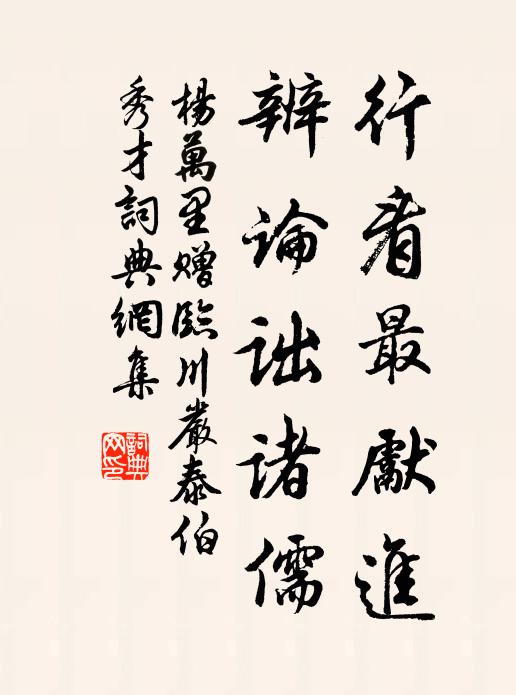 行看最獻進
辨論詘諸儒
楊萬里贈臨川嚴泰伯
秀才詞典網集
詞典网印